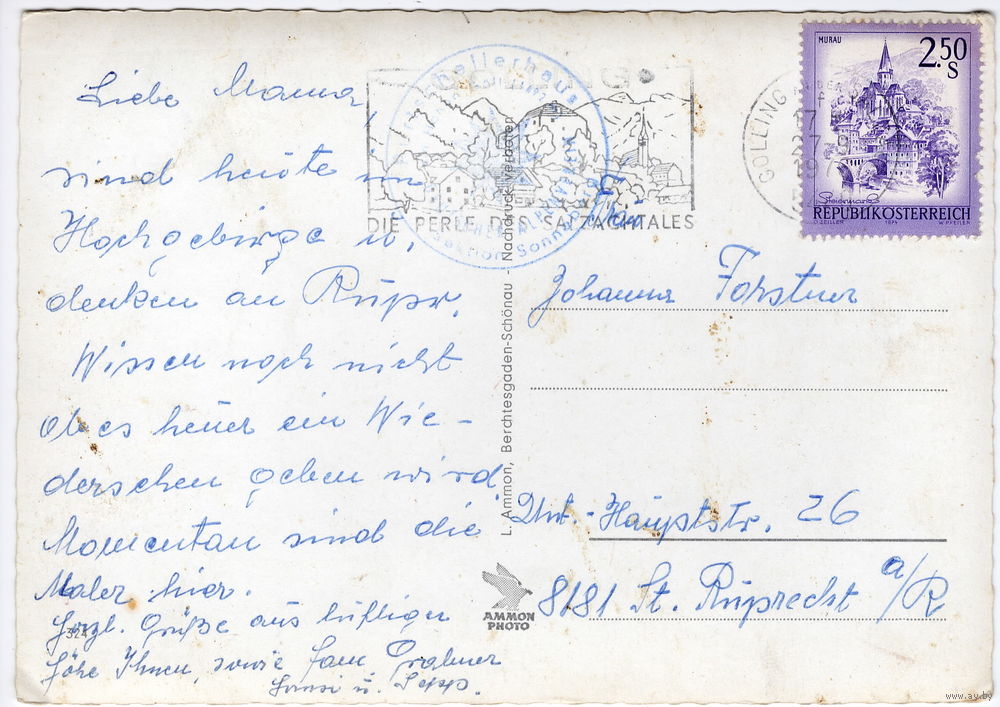 Liebe Mama
sind heute im
Hochgebirge u.
denken an Rupr.
Wissen noch nicht
ob es heuer ein Wie-
dersehen geben wird.
Momentan sind die
Maler hier.
Herzl. Grüße aus luftiger
Höhe Ihnen, sowie Fam.
Hansi u. Sepp.
324
GOLLING
DIE PERLE DES SALZACHTALES
L. Ammon, Berchtesgaden-Schönau - Nachdruck verboten
AMMON
PHOTO
GOLLING
MURAU
2.50
S
Steiermark
REPUBLIK ÖSTERREICH
O. ZEILLER 1974 W. PFEILER
Johanna Forstner
Unt.-Hauptstr. 26
8181 St. Ruprecht a/R
www.ay.by